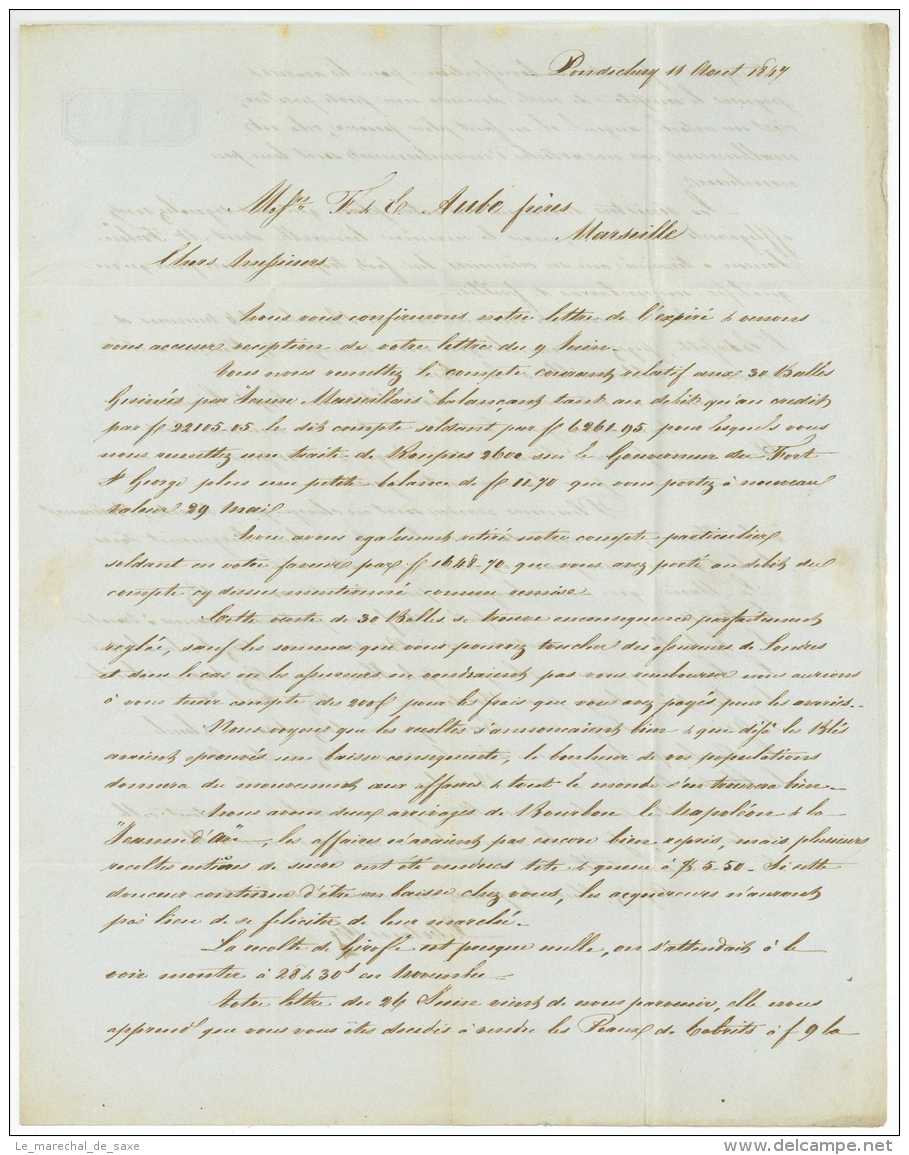 Pondichery 11 Aout 1847
Messrs F. & E. Aube frères
Marseille
Chers Messieurs
Nous vous confirmons notre lettre de l'expiré & venons
vous accuser reception de votre lettre du 9 Juin.
Vous nous remettez le compte courant relatif aux 30 Balles
Guinées par "Jeune Marseillais" balançant tant au debit qu'au credit
par f 22105.05 le dit compte soldant par f 6261.95 pour lesquels vous
nous remettez une traite de Roupies 2600 sur le Gouverneur du Fort
St George plus une petite balance de f 11.70 que vous portez à nouveau
valeur 29 Mai
Nous avons egalement retiré notre compte particulier
soldant en votre faveur par f 1648.70 que vous avez porté au debit du
compte cy dessus mentionné comme remise.
Cette vente de 30 Balles se trouve en consequence parfaitement
reglée, sauf les sommes que vous pourrez toucher des assureurs de Londres
et dans le cas ou les assureurs ne voudraient pas vous rembourser nous aurions
à vous tenir compte des 200f pour les frais que vous avez payés pour les avaries.
Nous voyons que les recoltes s'annoncaient bien & que déjà les Blés
avaient eprouvés une baisse consequente, le bonheur de vos populations
donnera du mouvement aux affaires & tout le monde s'en trouvera bien.
Nous avons deux arrivages de Bourbon le Napoléon & la
"Jeanne d'Arc", les affaires n'avaient pas encore bien repris, mais plusieurs
recoltes entières de sucre ont été vendues tete & queue à 5.50. Si cette
douceur continue d'être en baisse chez vous, les acquereurs n'auront
pas lieu de se feliciter de leur marché.
La recolte de Girofle est presque nulle, on s'attendait à le
voir monter à 28 & 30 en Novembre.
Votre lettre du 26 Juin vient de nous parvenir, elle nous
apprend que vous vous êtes decidés à vendre les Peaux de Cabrits à f 9 la
Le_marechal_de_saxe
delcampe.net